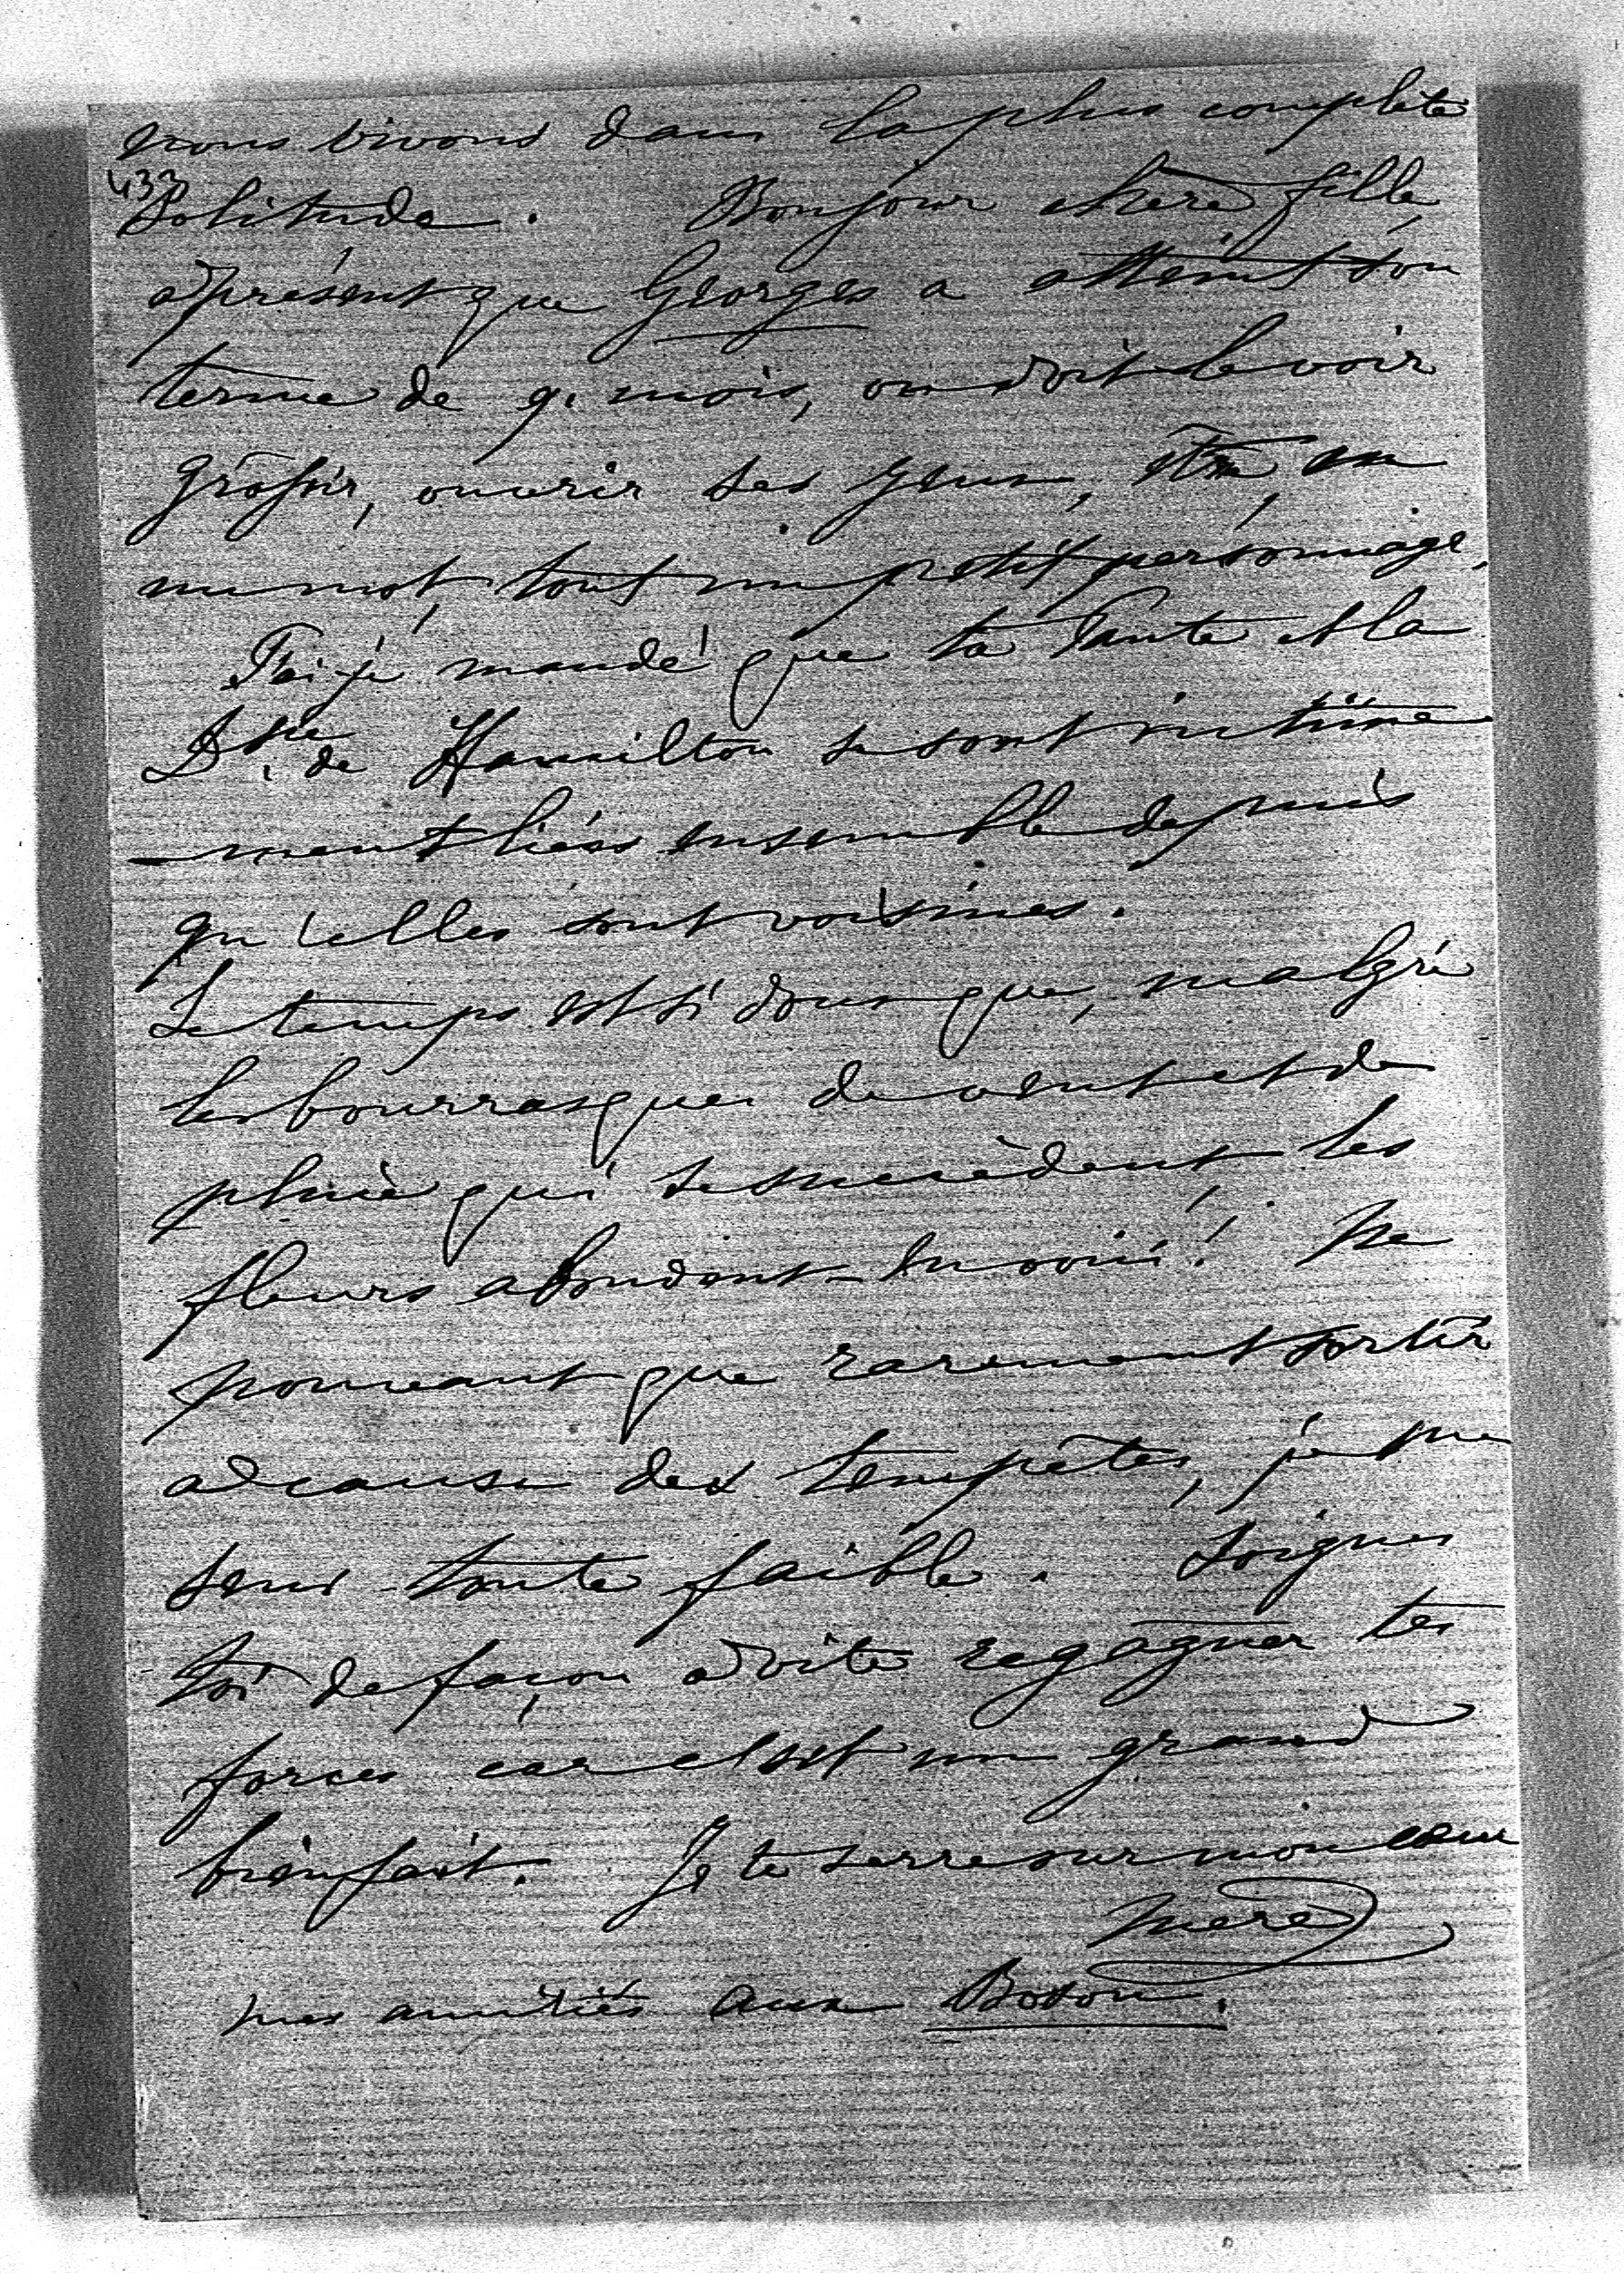 nous vivons dans la plus complète
solitude. Bonjour chère fille,
àprésent que Georges a atteint son
terme de 9. mois, on doit le voir
grossir, ouvrir ses yeux, être, en
un mot, tout un petit personnage.
T'ai-je mandé que ta Tante et la
Dsse de Hamilton se sont intime
-ment liées ensemble depuis
qu'elles sont voisines.
Le temps est si doux que, malgré
les bourrasques de vent et de
pluie qui se succèdent, les
fleurs abondent ! Ne
pouvant que rarement sortir
à cause des tempêtes, je me
sens toute faible. Soignes
toi de façon à vite regagner tes
forces car c'est un grand
bienfait. Je te serre sur mon cœur
mère
mes amitiés aux